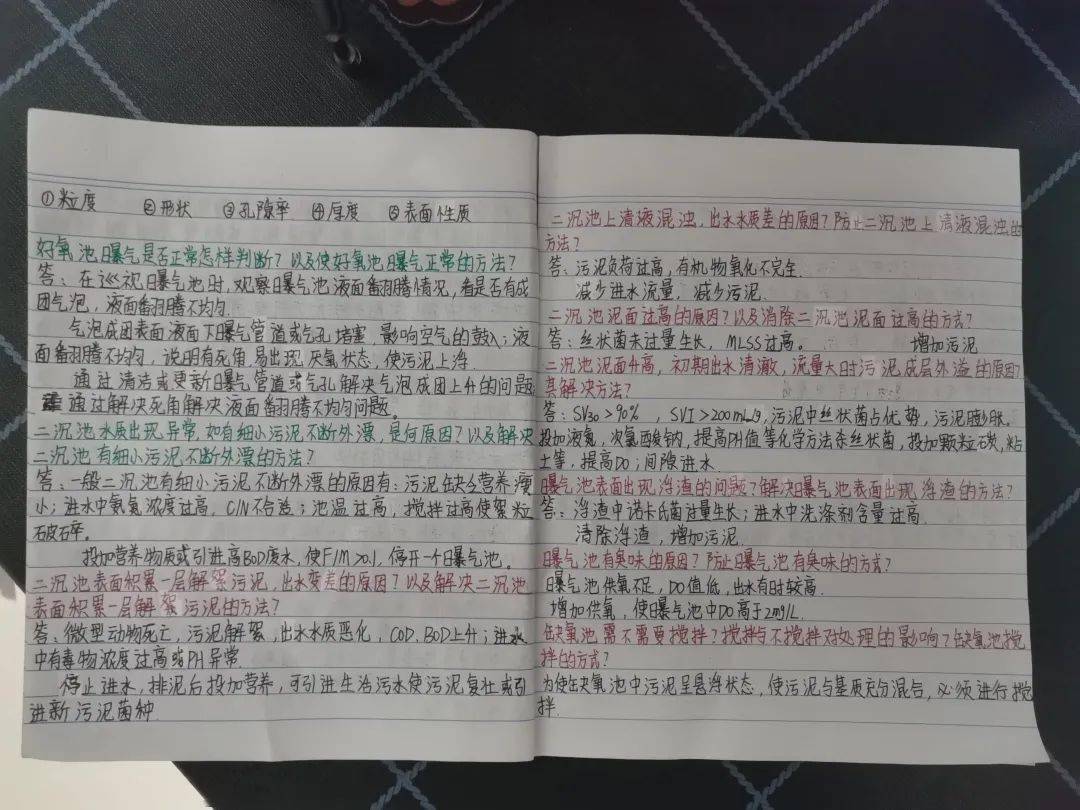 ①粒度 ②形状 ③孔隙率 ④厚度 ⑤表面性质
好氧池曝气是否正常怎样判断？以及使好氧池曝气正常的方法？
答：在巡视曝气池时，观察曝气池液面翻腾情况，看是否有成
团气泡，液面翻腾不均匀.
气泡成团表面液面下曝气管道或气孔堵塞，影响空气的鼓入；液
面翻腾不均匀，说明有死角易出现厌氧状态，使污泥上浮.
通过清洁或更新曝气管道或气孔解决气泡成团上升的问题
通过解决死角解决液面翻腾不均匀问题。
二沉池水质出现异常，如有细小污泥不断外漂，是何原因？以及解决
二沉池有细小污泥不断外漂的方法？
答：一般二沉池有细小污泥不断外漂的原因有：污泥缺乏营养瘦
小；进水中氨氮浓度过高，C/N不合适；池温过高，搅拌过高使絮粒
破碎.
投加营养物质或引进高BOD废水，使F/M>0.1，停开一个曝气池。
二沉池表面积累一层解絮污泥，出水变差的原因？以及解决二沉池
表面积累一层解絮污泥的方法？
答：微型动物死亡，污泥解絮，出水水质恶化，COD、BOD上升；进水
中有毒物浓度过高或PH异常.
停止进水，排泥后投加营养，可引进生活污水使污泥复壮或引
进新污泥菌种.
二沉池上清液混浊，出水水质差的原因？防止二沉池上清液混浊的
方法？
答：污泥负荷过高，有机物氧化不完全.
减少进水流量，减少污泥.
二沉池泥面过高的原因？以及消除二沉池泥面过高的方式？
答：丝状菌未过量生长，MLSS过高。 增加污泥
二沉池泥面升高，初期出水清澈，流量大时污泥成层外溢的原因
其解决方法？
答：SV30>90%，SVI>200mL/g，污泥中丝状菌占优势，污泥膨胀。
投加液氯，次氯酸钠，提高PH值等化学方法杀丝状菌，投加颗粒碳，粘
土等，提高DO；间隙进水.
曝气池表面出现浮渣的问题？解决曝气池表面出现浮渣的方法？
答：浮渣中诺卡氏菌过量生长；进水中洗涤剂含量过高.
清除浮渣，增加污泥.
曝气池有臭味的原因？防止曝气池有臭味的方式？
曝气池供氧不足，DO值低，出水有时较高.
增加供氧，使曝气池中DO高于2mg/L.
缺氧池需不需要搅拌？搅拌与不搅拌对处理的影响？缺氧池搅
拌的方式？
为使缺氧池中污泥呈悬浮状态，使污泥与基质充分混合，必须进行搅
拌.